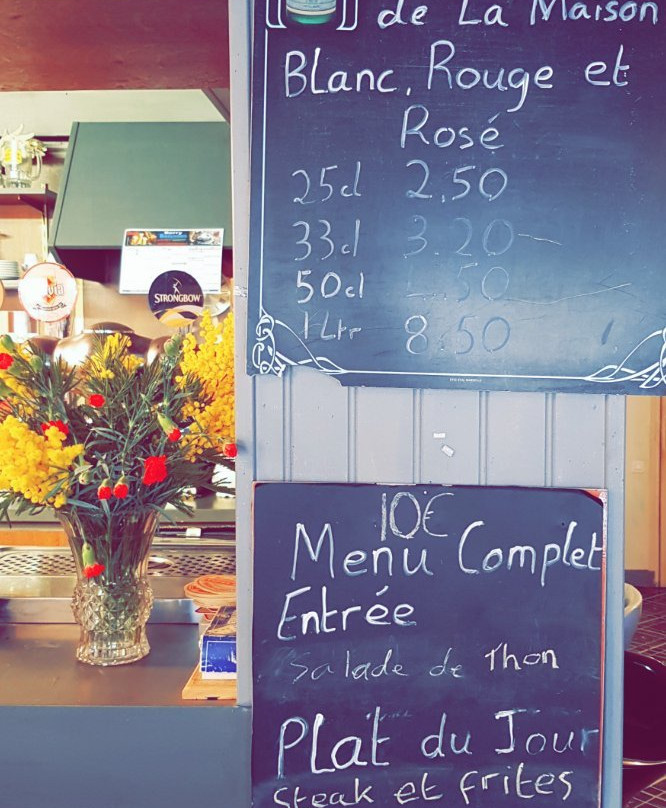 de La Maison
Blanc, Rouge et
Rosé
25cl 2.50
33cl 3.20
50cl .50
1 Ltr 8.50
STRONGBOW
10€
Menu Complet
Entrée
Salade de Thon
Plat du Jour
Steak et frites